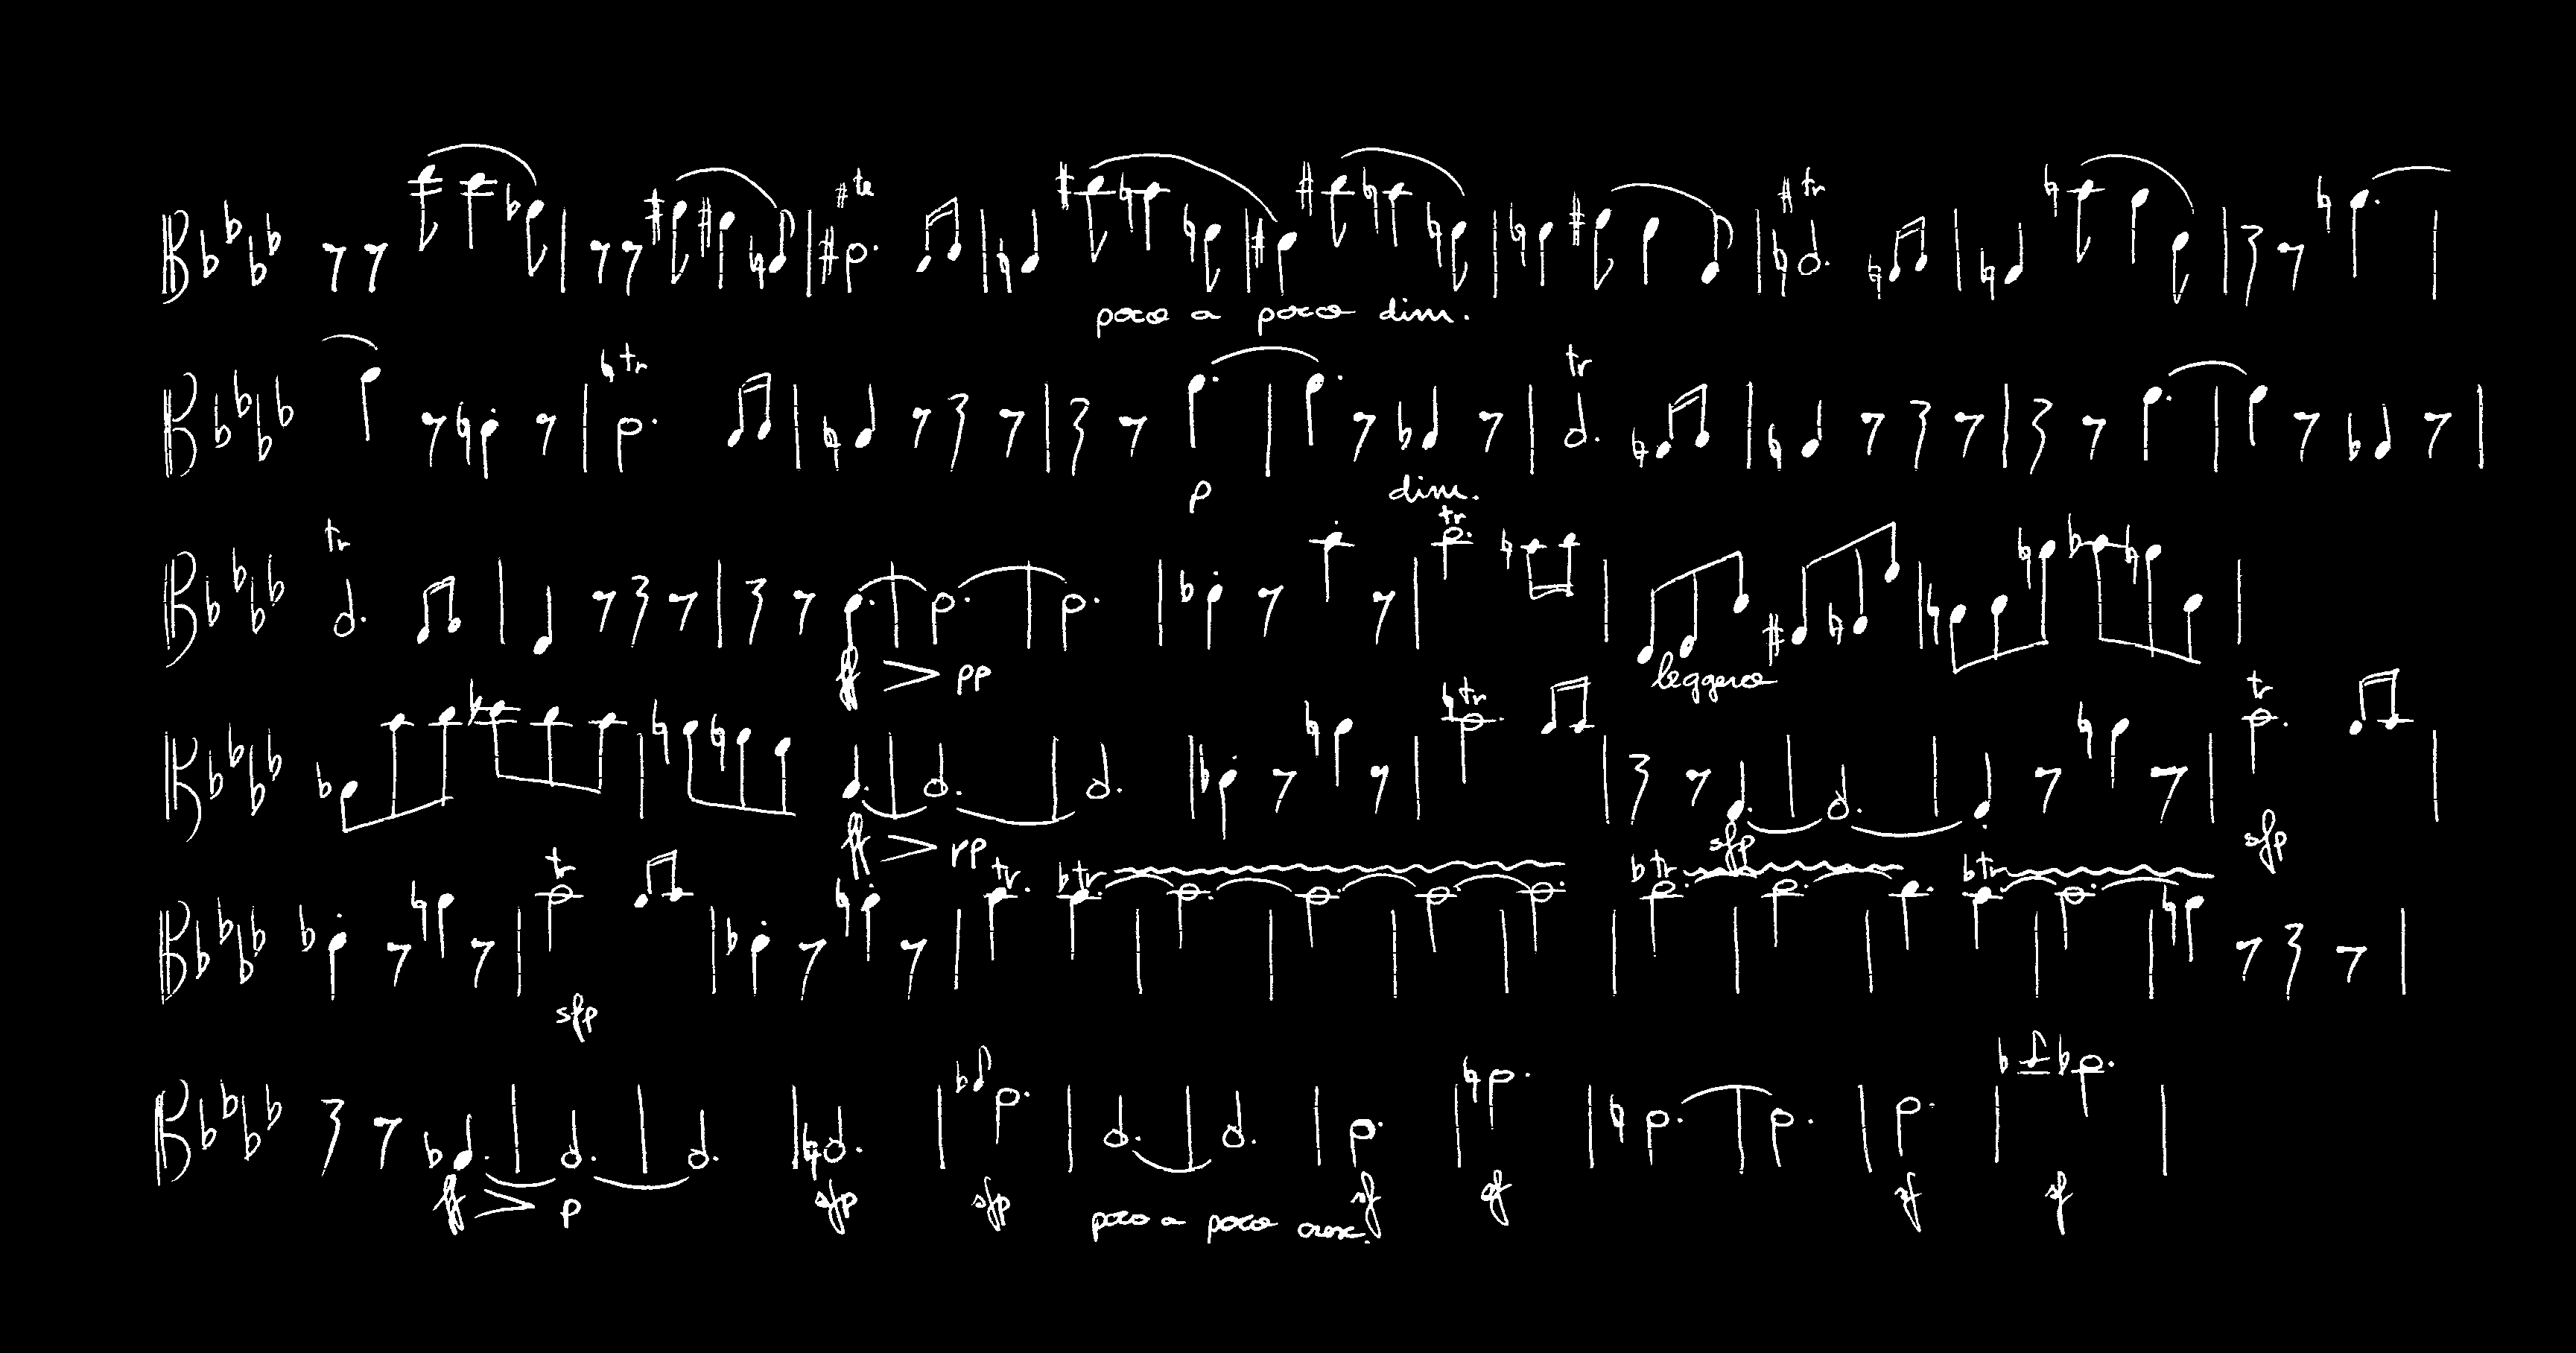 tr
tr
poco a poco dim.
tr tr
p dim.
tr tr
ff > pp leggero
tr tr
ff > pp sfp sfp
tr tr tr tr tr
sfp
ff > p sfp sfp poco a poco cresc. sf sf sf sf